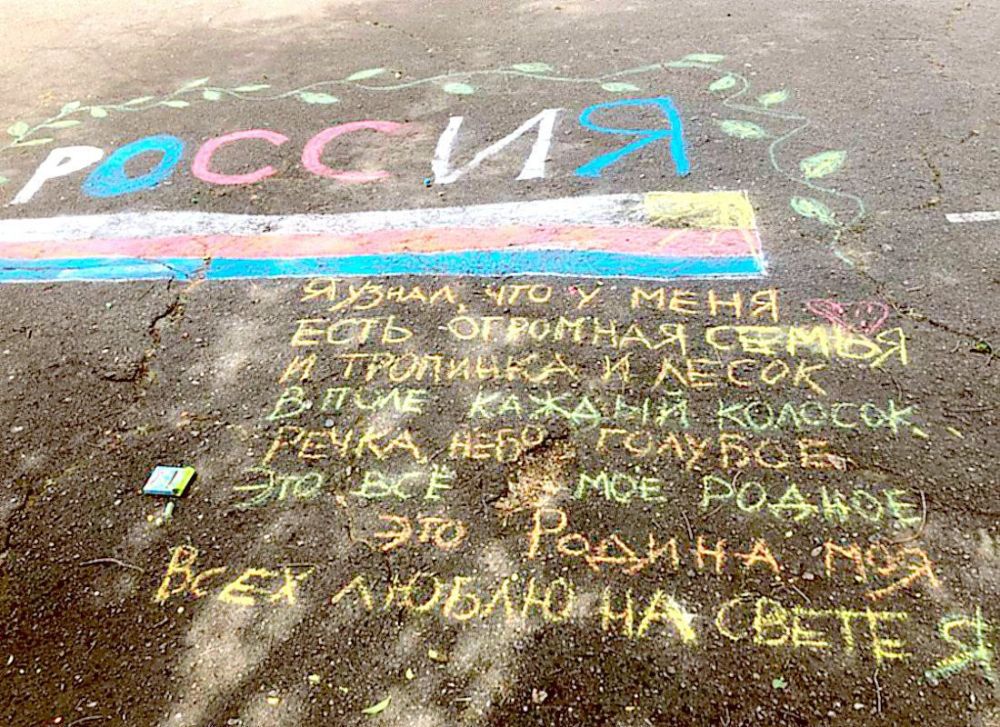 РОССИЯ
Я УЗНАЛ, ЧТО У МЕНЯ
ЕСТЬ ОГРОМНАЯ СЕМЬЯ
И ТРОПИНКА И ЛЕСОК
В ПОЛЕ КАЖДЫЙ КОЛОСОК,
РЕЧКА, НЕБО ГОЛУБОЕ
ЭТО ВСЁ МОЁ РОДНОЕ
ЭТО РОДИНА МОЯ
ВСЕХ ЛЮБЛЮ НА СВЕТЕ Я